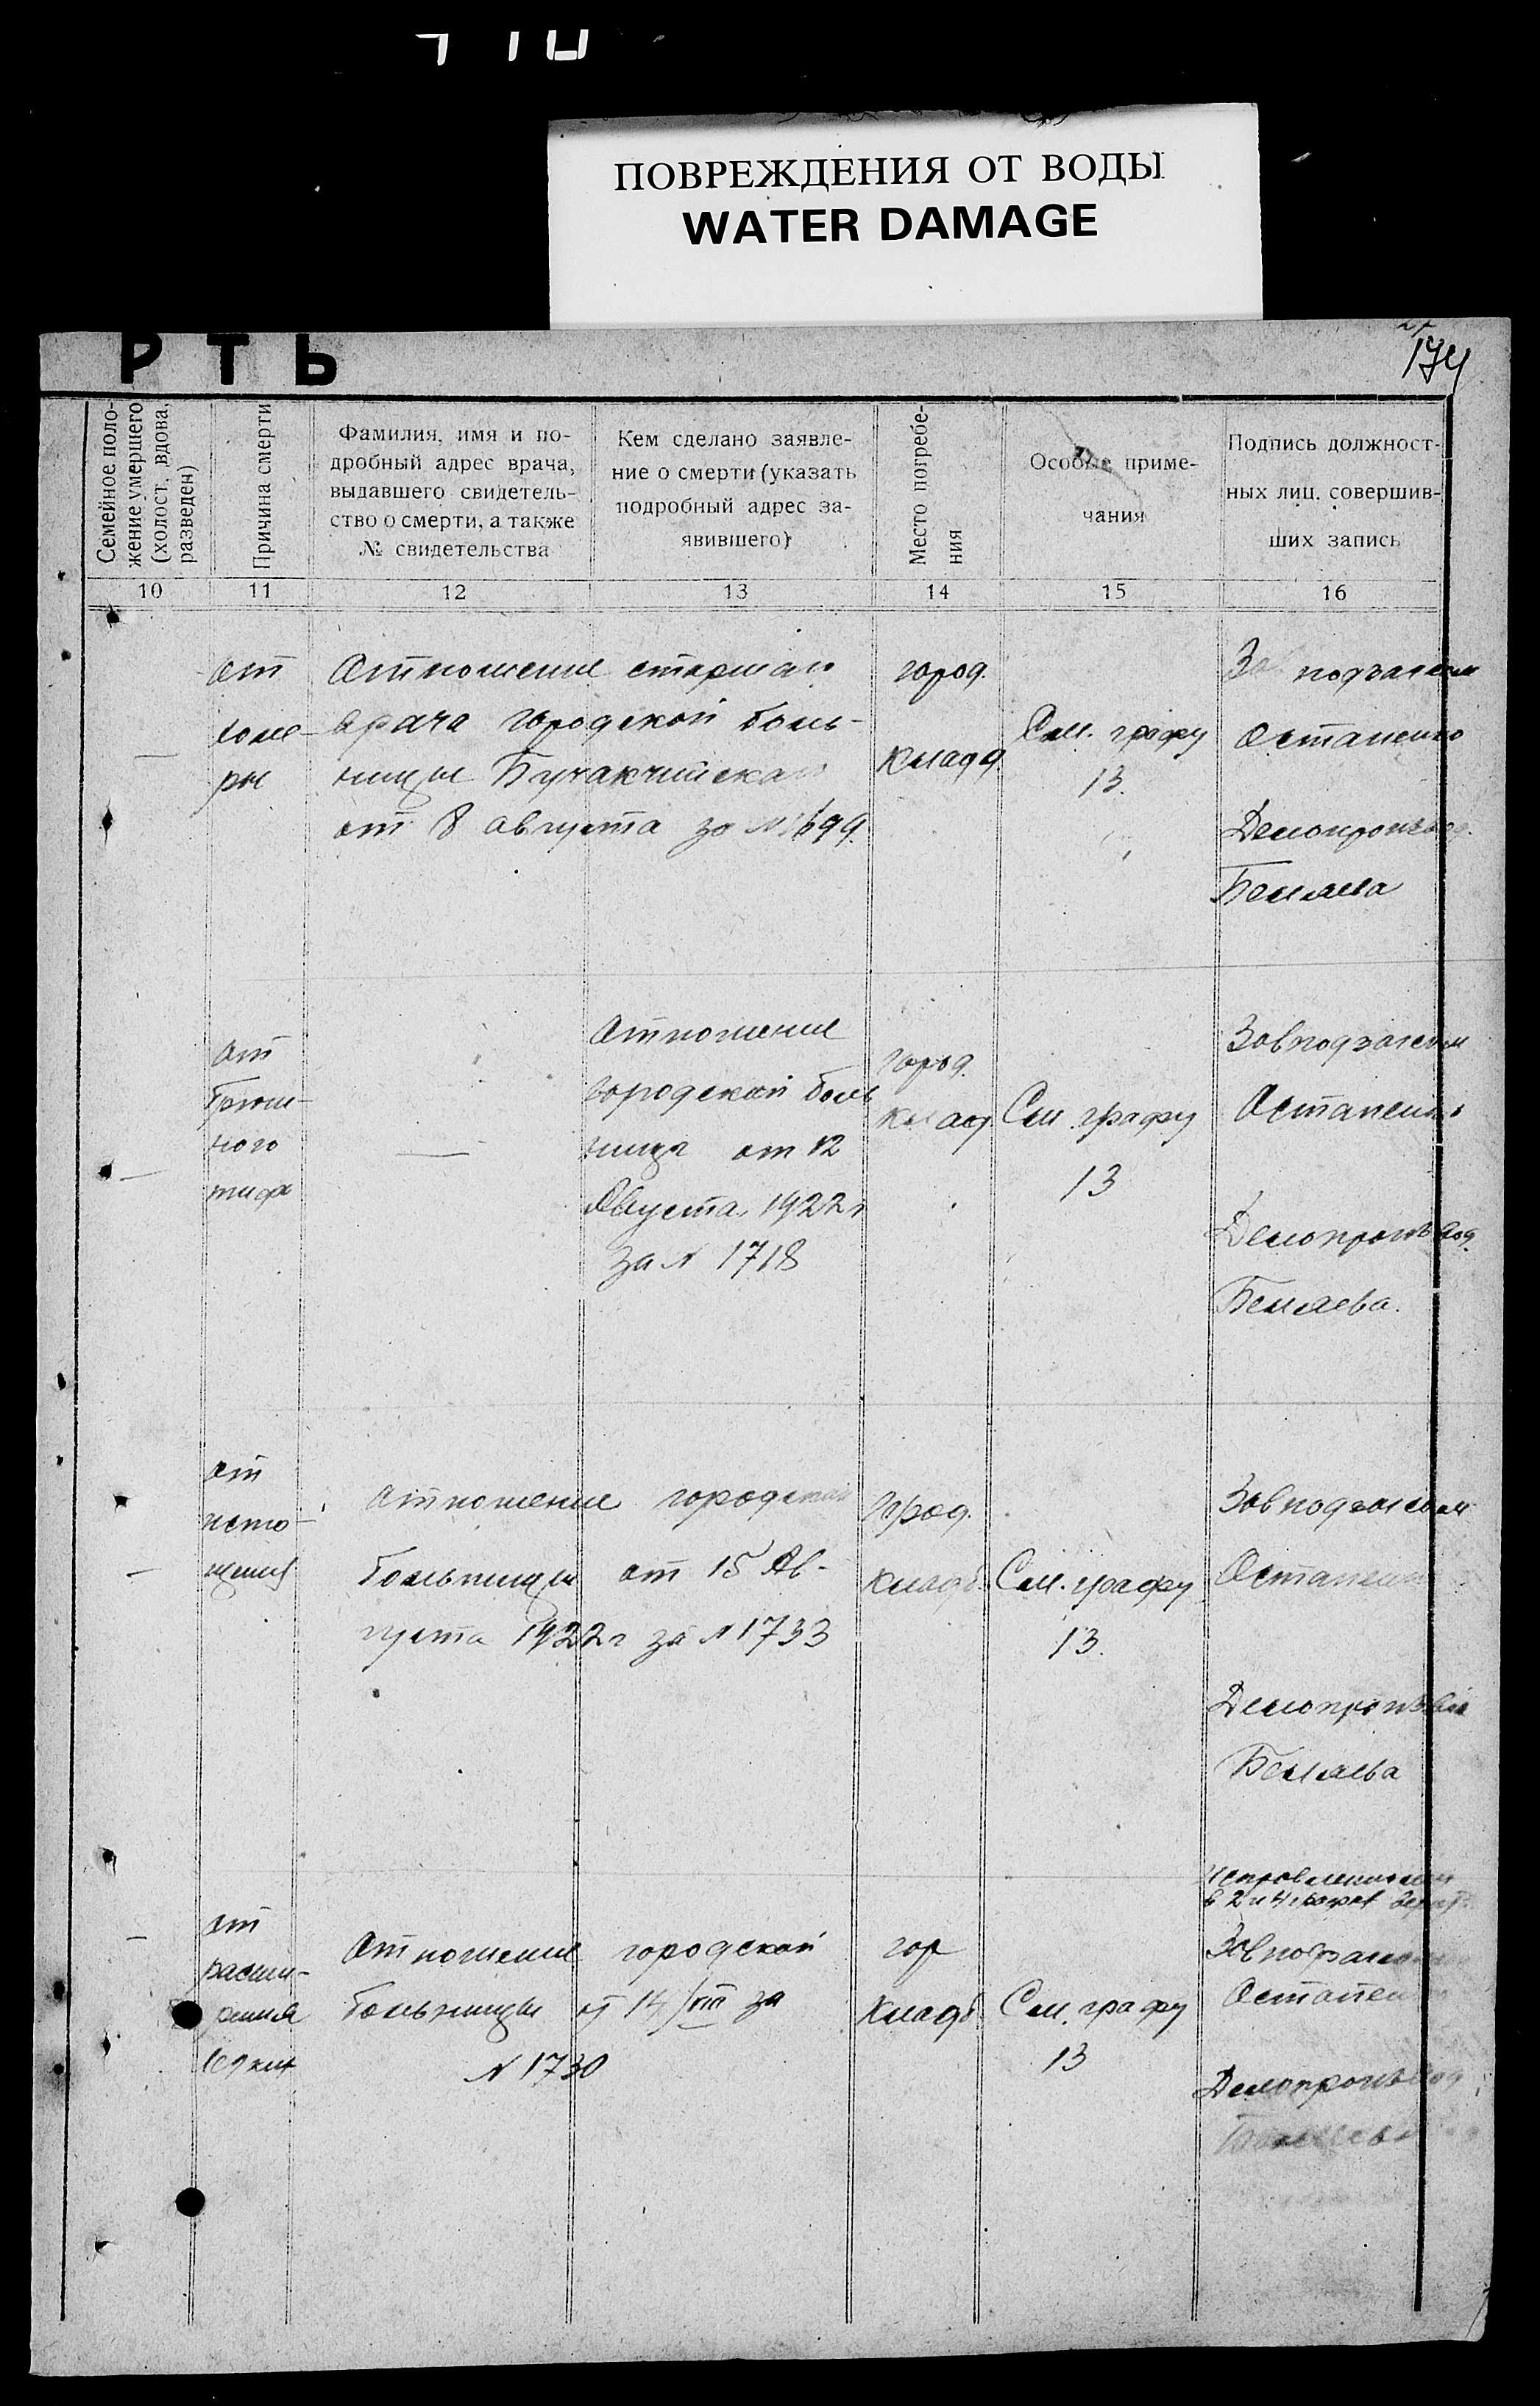 ПОВРЕЖДЕНИЯ ОТ ВОДЫ
WATER DAMAGE
РТЬ
174
Семейное поло-
жение умершего
(холост, вдова,
разведен)
Причина смерти
Фамилия, имя и по-
дробный адрес врача,
выдавшего свидетель-
ство о смерти, а также
№ свидетельства
Кем сделано заявле-
ние о смерти (указать
подробный адрес за-
явившего)
Место погребе-
ния
Особые приме-
чания
Подпись должност-
ных лиц, совершив-
ших запись
10
11
12
13
14
15
16
—
от
холе-
ры
Отношение старшаго
врача городской боль-
ницы
от 8 августа за № 1699.
город.
кладд.
См. графу
13.
Зав подзагсом
Остапенко
Делопроизвод.
Беляева
—
от
брюш-
ного
тифа
—
Отношение
городской боль
ницы от 12
Августа 1922 г
за № 1718
город.
клад
См. графу
13
Завподзагсом
Остапенко
Делопроизвод.
Беляева.
—
от
исто-
щения
Отношение городской
больницы от 15 Ав-
густа 1922 г за № 1733
город.
кладб.
См. графу
13.
Завподзагсом
Остапенко
Делопроизвод
Беляева
—
от
расши-
рения
Отношение городской
больницы от 14/VIII за
№ 1730
гор
кладб.
См. графу
13
в 2 и 4 графе
Завподзагсом
Остапенко
Делопроизвод